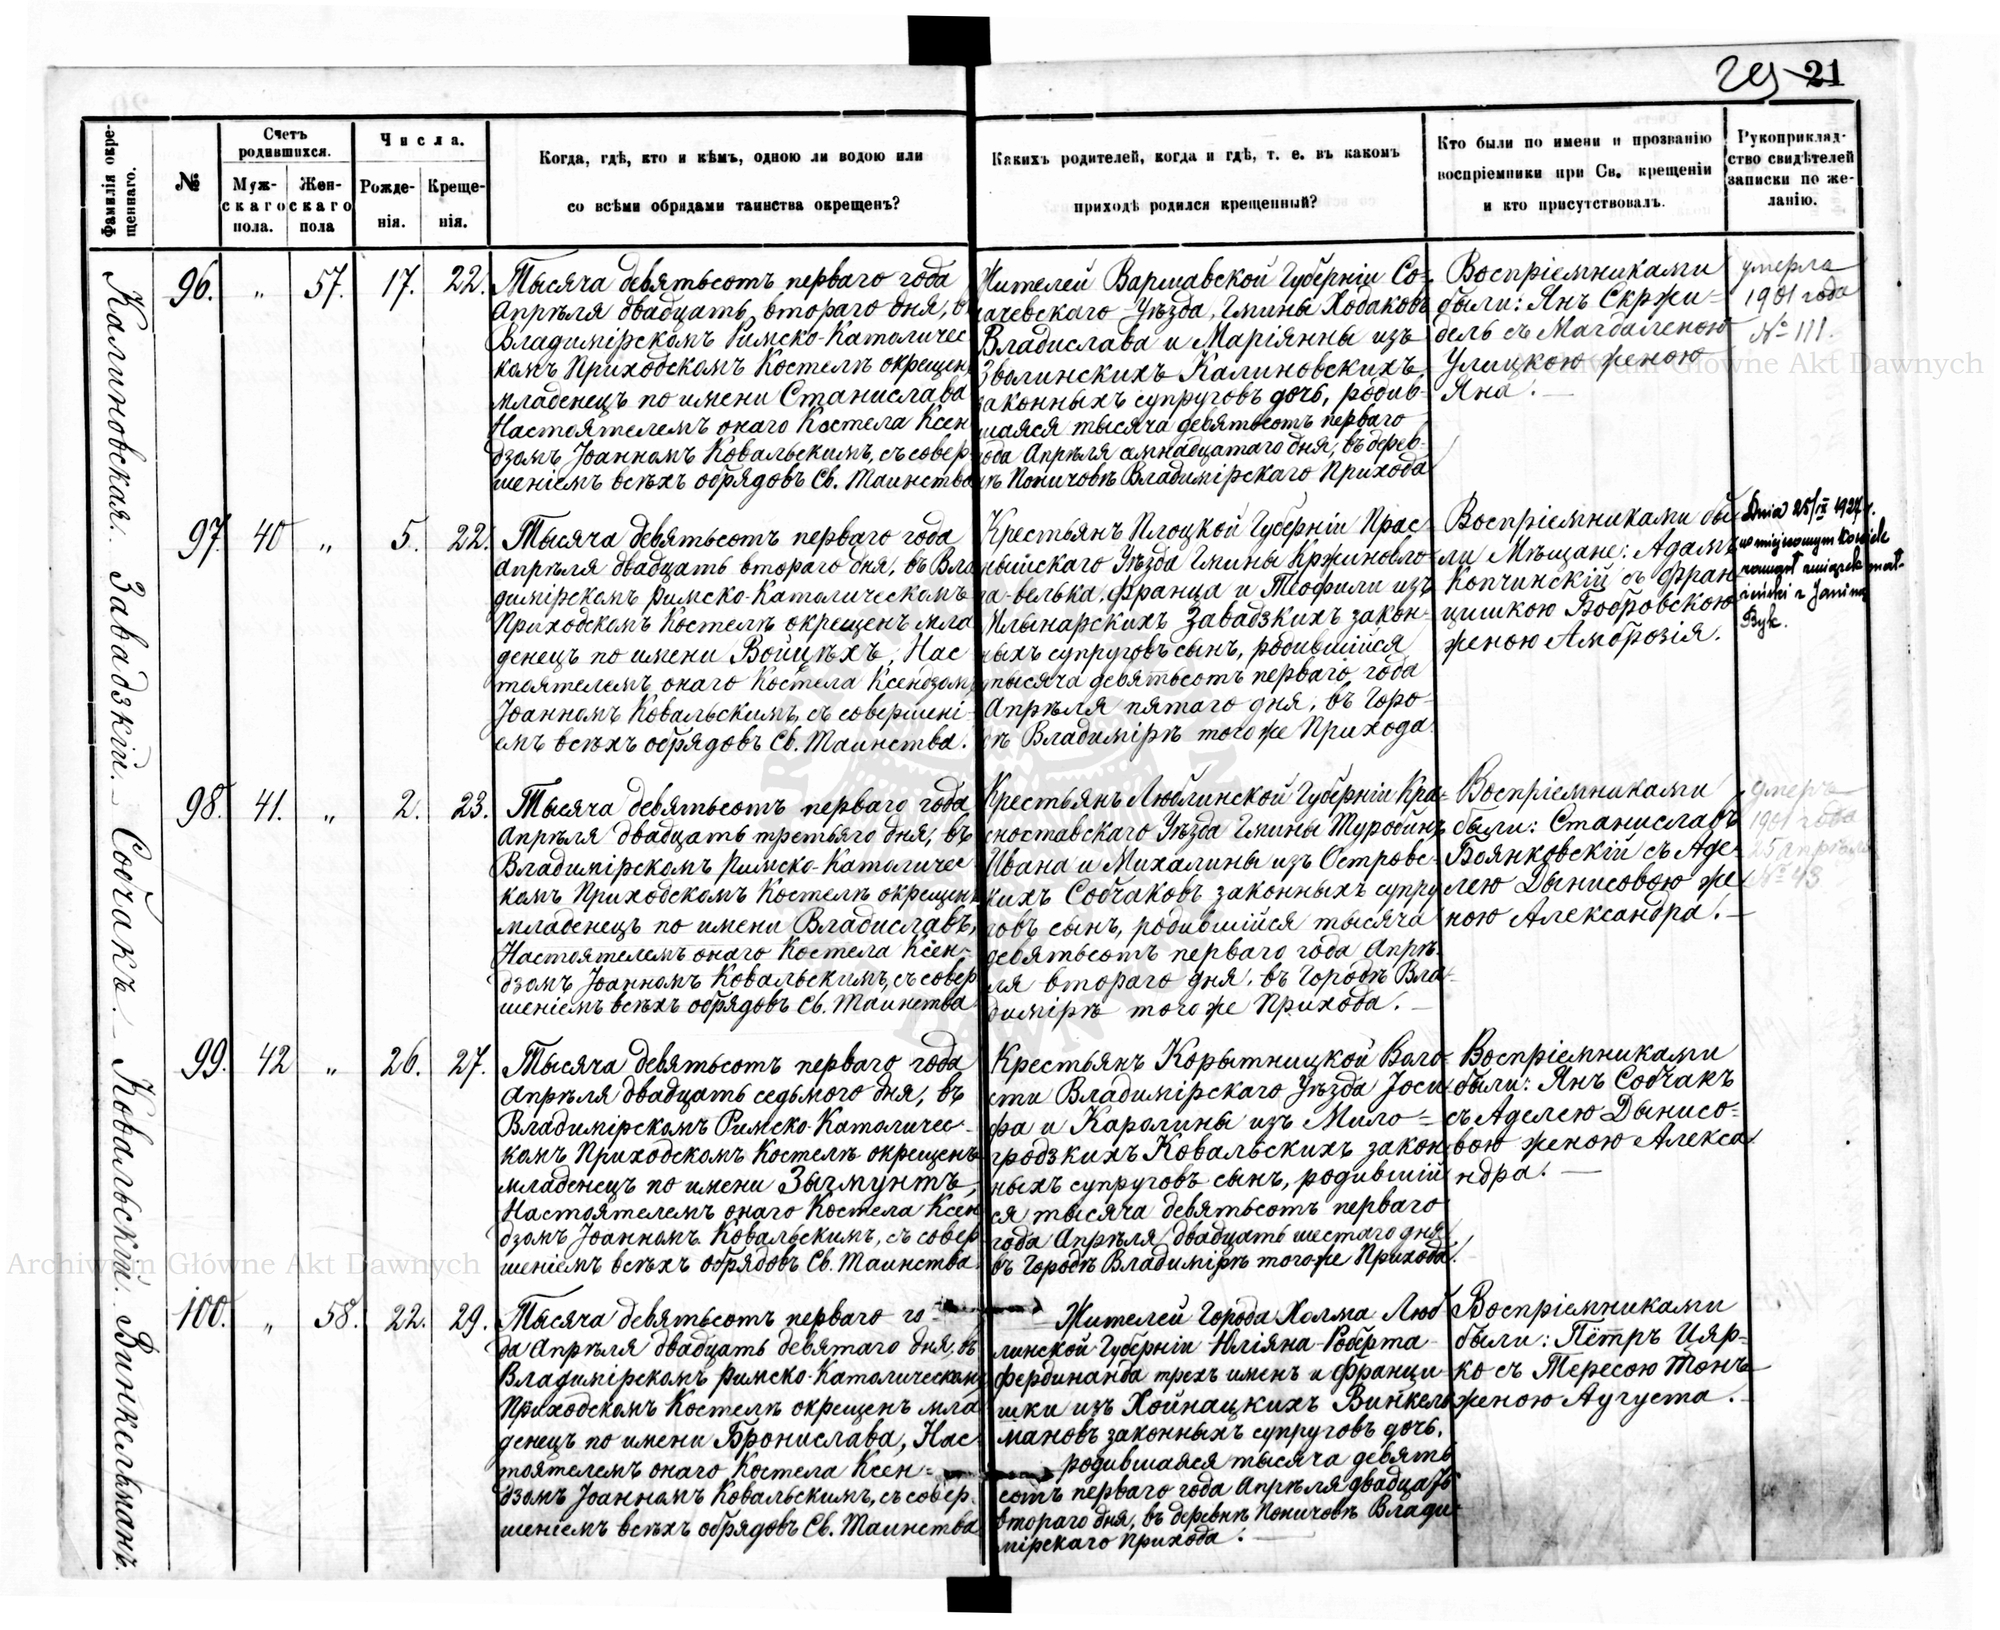 21
Фамилія окрещеннаго.
№
Счетъ родившихся.
Мужскаго пола.
Женскаго пола
Числа.
Рожденія.
Крещенія.
Когда, гдѣ, кто и кѣмъ, одною ли водою или
со всѣми обрядами таинства окрещенъ?
Какихъ родителей, когда и гдѣ, т. е. въ какомъ
приходѣ родился крещенный?
Кто были по имени и прозванію
воспріемники при Св. крещеніи
и кто присутствовалъ.
Рукоприклад-
ство свидѣтелей
записки по же-
ланію.
Калиновская.
96. " 57. 17. 22.
Тысяча девятьсотъ перваго года
Апрѣля двадцать втораго дня, въ
Владимірскомъ Римско-Католичес
комъ Приходскомъ Костелѣ окрещенъ
младенецъ по имени Станислава
Настоятелемъ онаго Костела Ксен
дзомъ Іоанномъ Ковальскимъ, съ совер-
шеніемъ всѣхъ обрядовъ Св. Таинства
Жителей Варшавской Губерніи Со-
хачевскаго Уѣзда, Гмины Ходаковъ
Владислава и Маріянны изъ
Зволинскихъ Калиновскихъ
законныхъ супруговъ дочь, родив-
шаяся тысяча девятьсотъ перваго
года Апрѣля семнадцатаго дня, въ дерев-
нѣ Поничовѣ Владимірскаго Прихода
Воспріемниками
были: Янъ Скржи-
дель съ Магдаленою
Улицкою женою
Яна.
умерла
1901 года
№ 111.
Завадзкій.
97. 40 " 5. 22.
Тысяча девятьсотъ перваго года
Апрѣля двадцать втораго дня, въ Вла
димірскомъ Римско-Католическомъ
Приходскомъ Костелѣ окрещенъ мла
денецъ по имени Войцѣхъ, Нас
тоятелемъ онаго Костела Ксендзомъ
Іоанномъ Ковальскимъ, съ совершені-
емъ всѣхъ обрядовъ Св. Таинства.
Крестьянъ Плоцкой Губерніи Прас-
нышскаго Уѣзда Гмины Кржиновло-
га-велька. Франца и Теофили изъ
Млынарскихъ Завадзкихъ закон-
ныхъ супруговъ сынъ, родившійся
тысяча девятьсотъ перваго года
Апрѣля пятаго дня, въ Горо-
дѣ Владимірѣ того же Прихода
Воспріемниками бы-
ли Мѣщане: Адамъ
Копчинскій съ Фран-
цишкою Бобровскою
женою Амброзія.
Dnia 25/IX 1927 r.
w miejscowym Kościele
zawarł związek mał-
żeński z Janiną
Byk.
Собчакъ.
98. 41. " 2. 23.
Тысяча девятьсотъ перваго года
Апрѣля двадцать третьяго дня, въ
Владимірскомъ Римско-Католичес
комъ Приходскомъ Костелѣ окрещенъ
младенецъ по имени Владиславъ,
Настоятелемъ онаго Костела Ксен-
дзомъ Іоанномъ Ковальскимъ, съ совер
шеніемъ всѣхъ обрядовъ Св. Таинства
Крестьянъ Люблинской Губерніи Кра-
сноставскаго Уѣзда Гмины Туробинъ
Ивана и Михалины изъ Островс-
кихъ Собчаковъ законныхъ супру
говъ сынъ, родившійся тысяча
девятьсотъ перваго года Апрѣ-
ля втораго дня, въ Городѣ Вла-
димірѣ того же Прихода.
Воспріемниками
были: Станиславъ
Боянковскій съ Аде-
лею Дынисовою же-
ною Александра.
умеръ
1901 года
25 апрѣля
№ 43
Ковальскій.
99. 42 " 26. 27.
Тысяча девятьсотъ перваго года
Апрѣля двадцать седьмого дня, въ
Владимірскомъ Римско-Католичес-
комъ Приходскомъ Костелѣ окрещенъ
младенецъ по имени Зыгмунтъ,
Настоятелемъ онаго Костела Ксен
дзомъ Іоанномъ Ковальскимъ, съ совер
шеніемъ всѣхъ обрядовъ Св. Таинства
Крестьянъ Корытницкой Воло-
сти Владимірскаго Уѣзда Іоси
фа и Каролины изъ Мило-
гродзкихъ Ковальскихъ закон
ныхъ супруговъ сынъ, родившій
ся тысяча девятьсотъ перваго
года Апрѣля двадцать шестаго дня
въ Городѣ Владимірѣ того же Прихода.
Воспріемниками
были: Янъ Собчакъ
съ Аделею Дынисо-
вою женою Алекса
ндра.
Винкельманъ.
100. " 58. 22. 29.
Тысяча девятьсотъ перваго го-
да Апрѣля двадцать девятаго дня, въ
Владимірскомъ Римско-Католическомъ
Приходскомъ Костелѣ окрещенъ мла
денецъ по имени Бронислава, Нас-
тоятелемъ онаго Костела Ксен-
дзомъ Іоанномъ Ковальскимъ, съ совер-
шеніемъ всѣхъ обрядовъ Св. Таинства
Жителей Города Холма Люб
линской Губерніи Юліяна-Роберта-
Фердинанда трехъ именъ и Франци
шки изъ Хойнацкихъ Винкель
мановъ законныхъ супруговъ дочь,
родившаяся тысяча девять
сотъ перваго года Апрѣля двадцать
втораго дня, въ деревнѣ Поничовѣ Влади
мірскаго Прихода.
Воспріемниками
были: Пётръ Цяр-
ко съ Тересою Тонъ
женою Аугуста.
Archiwum Główne Akt Dawnych
Archiwum Główne Akt Dawnych